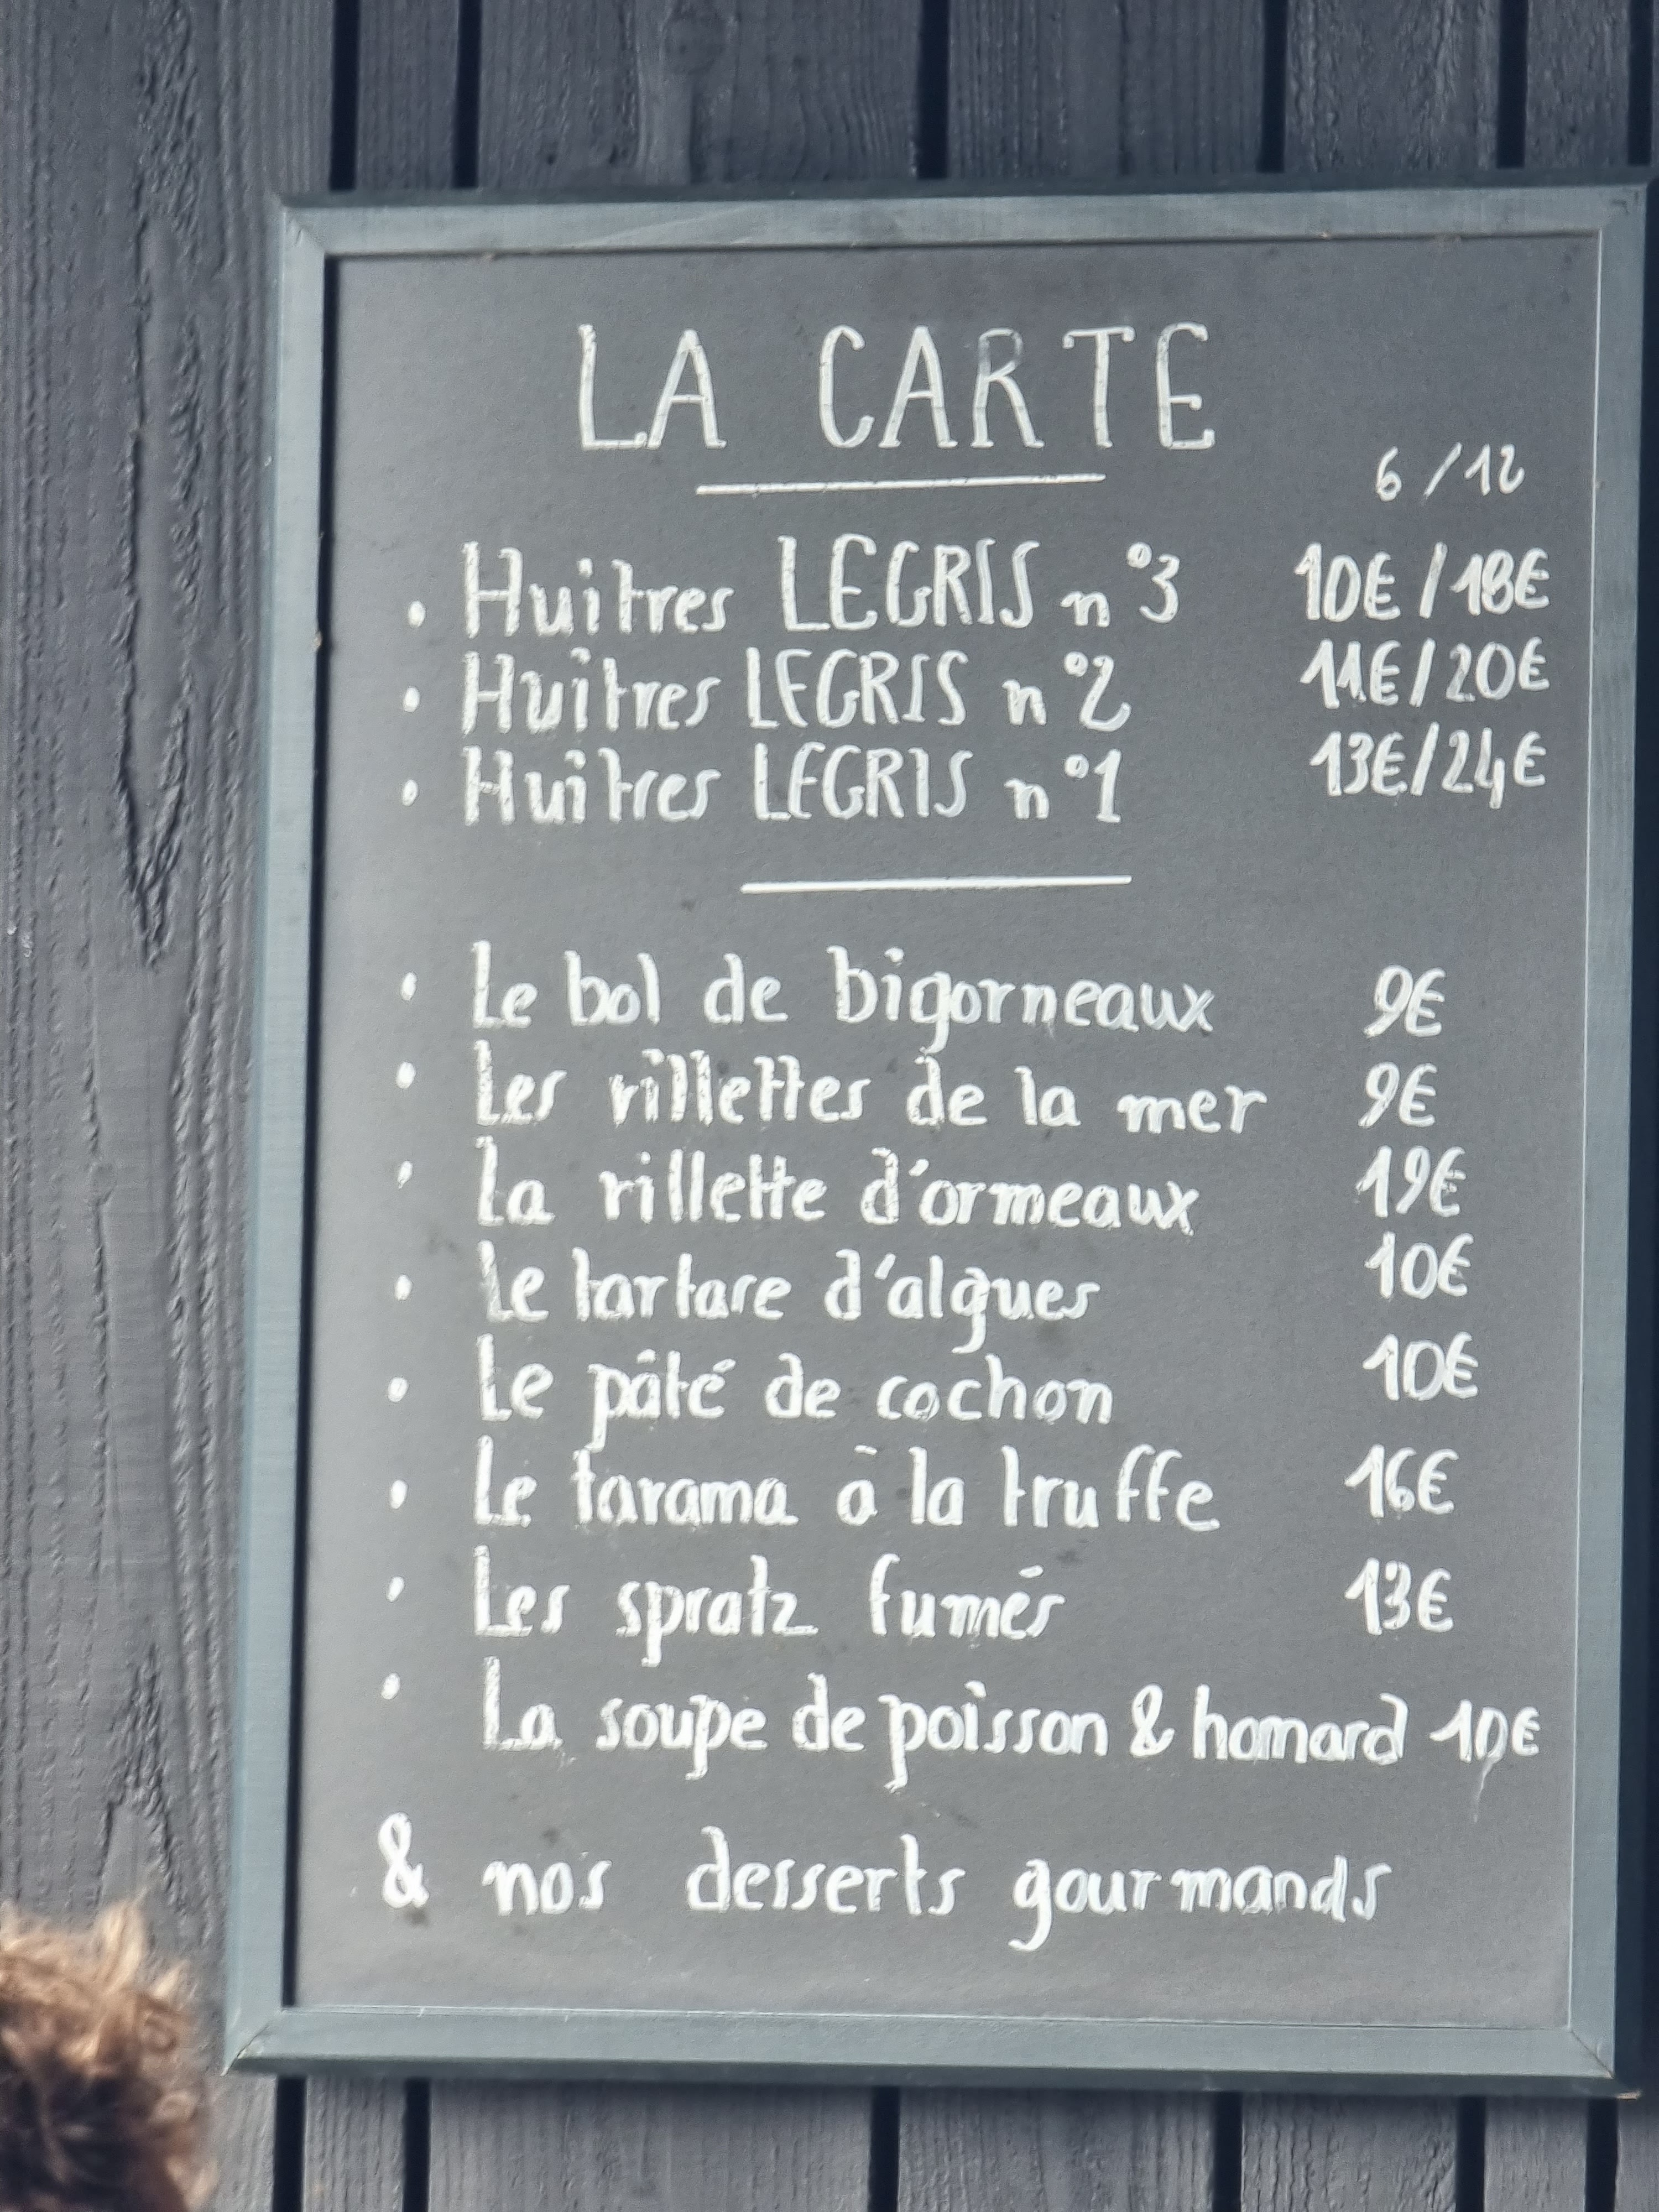 LA CARTE
6/12
• Huitres LEGRIS n°3 10€/18€
• Huîtres LEGRIS n°2 11€/20€
• Huîtres LEGRIS n°1 13€/24€
• Le bol de bigorneaux 9€
• Les rillettes de la mer 9€
• La rillette d'ormeaux 19€
• Le tartare d'algues 10€
• Le pâté de cochon 10€
• Le tarama à la truffe 16€
• Les spratz fumés 13€
• La soupe de poisson & homard 10€
& nos desserts gourmands